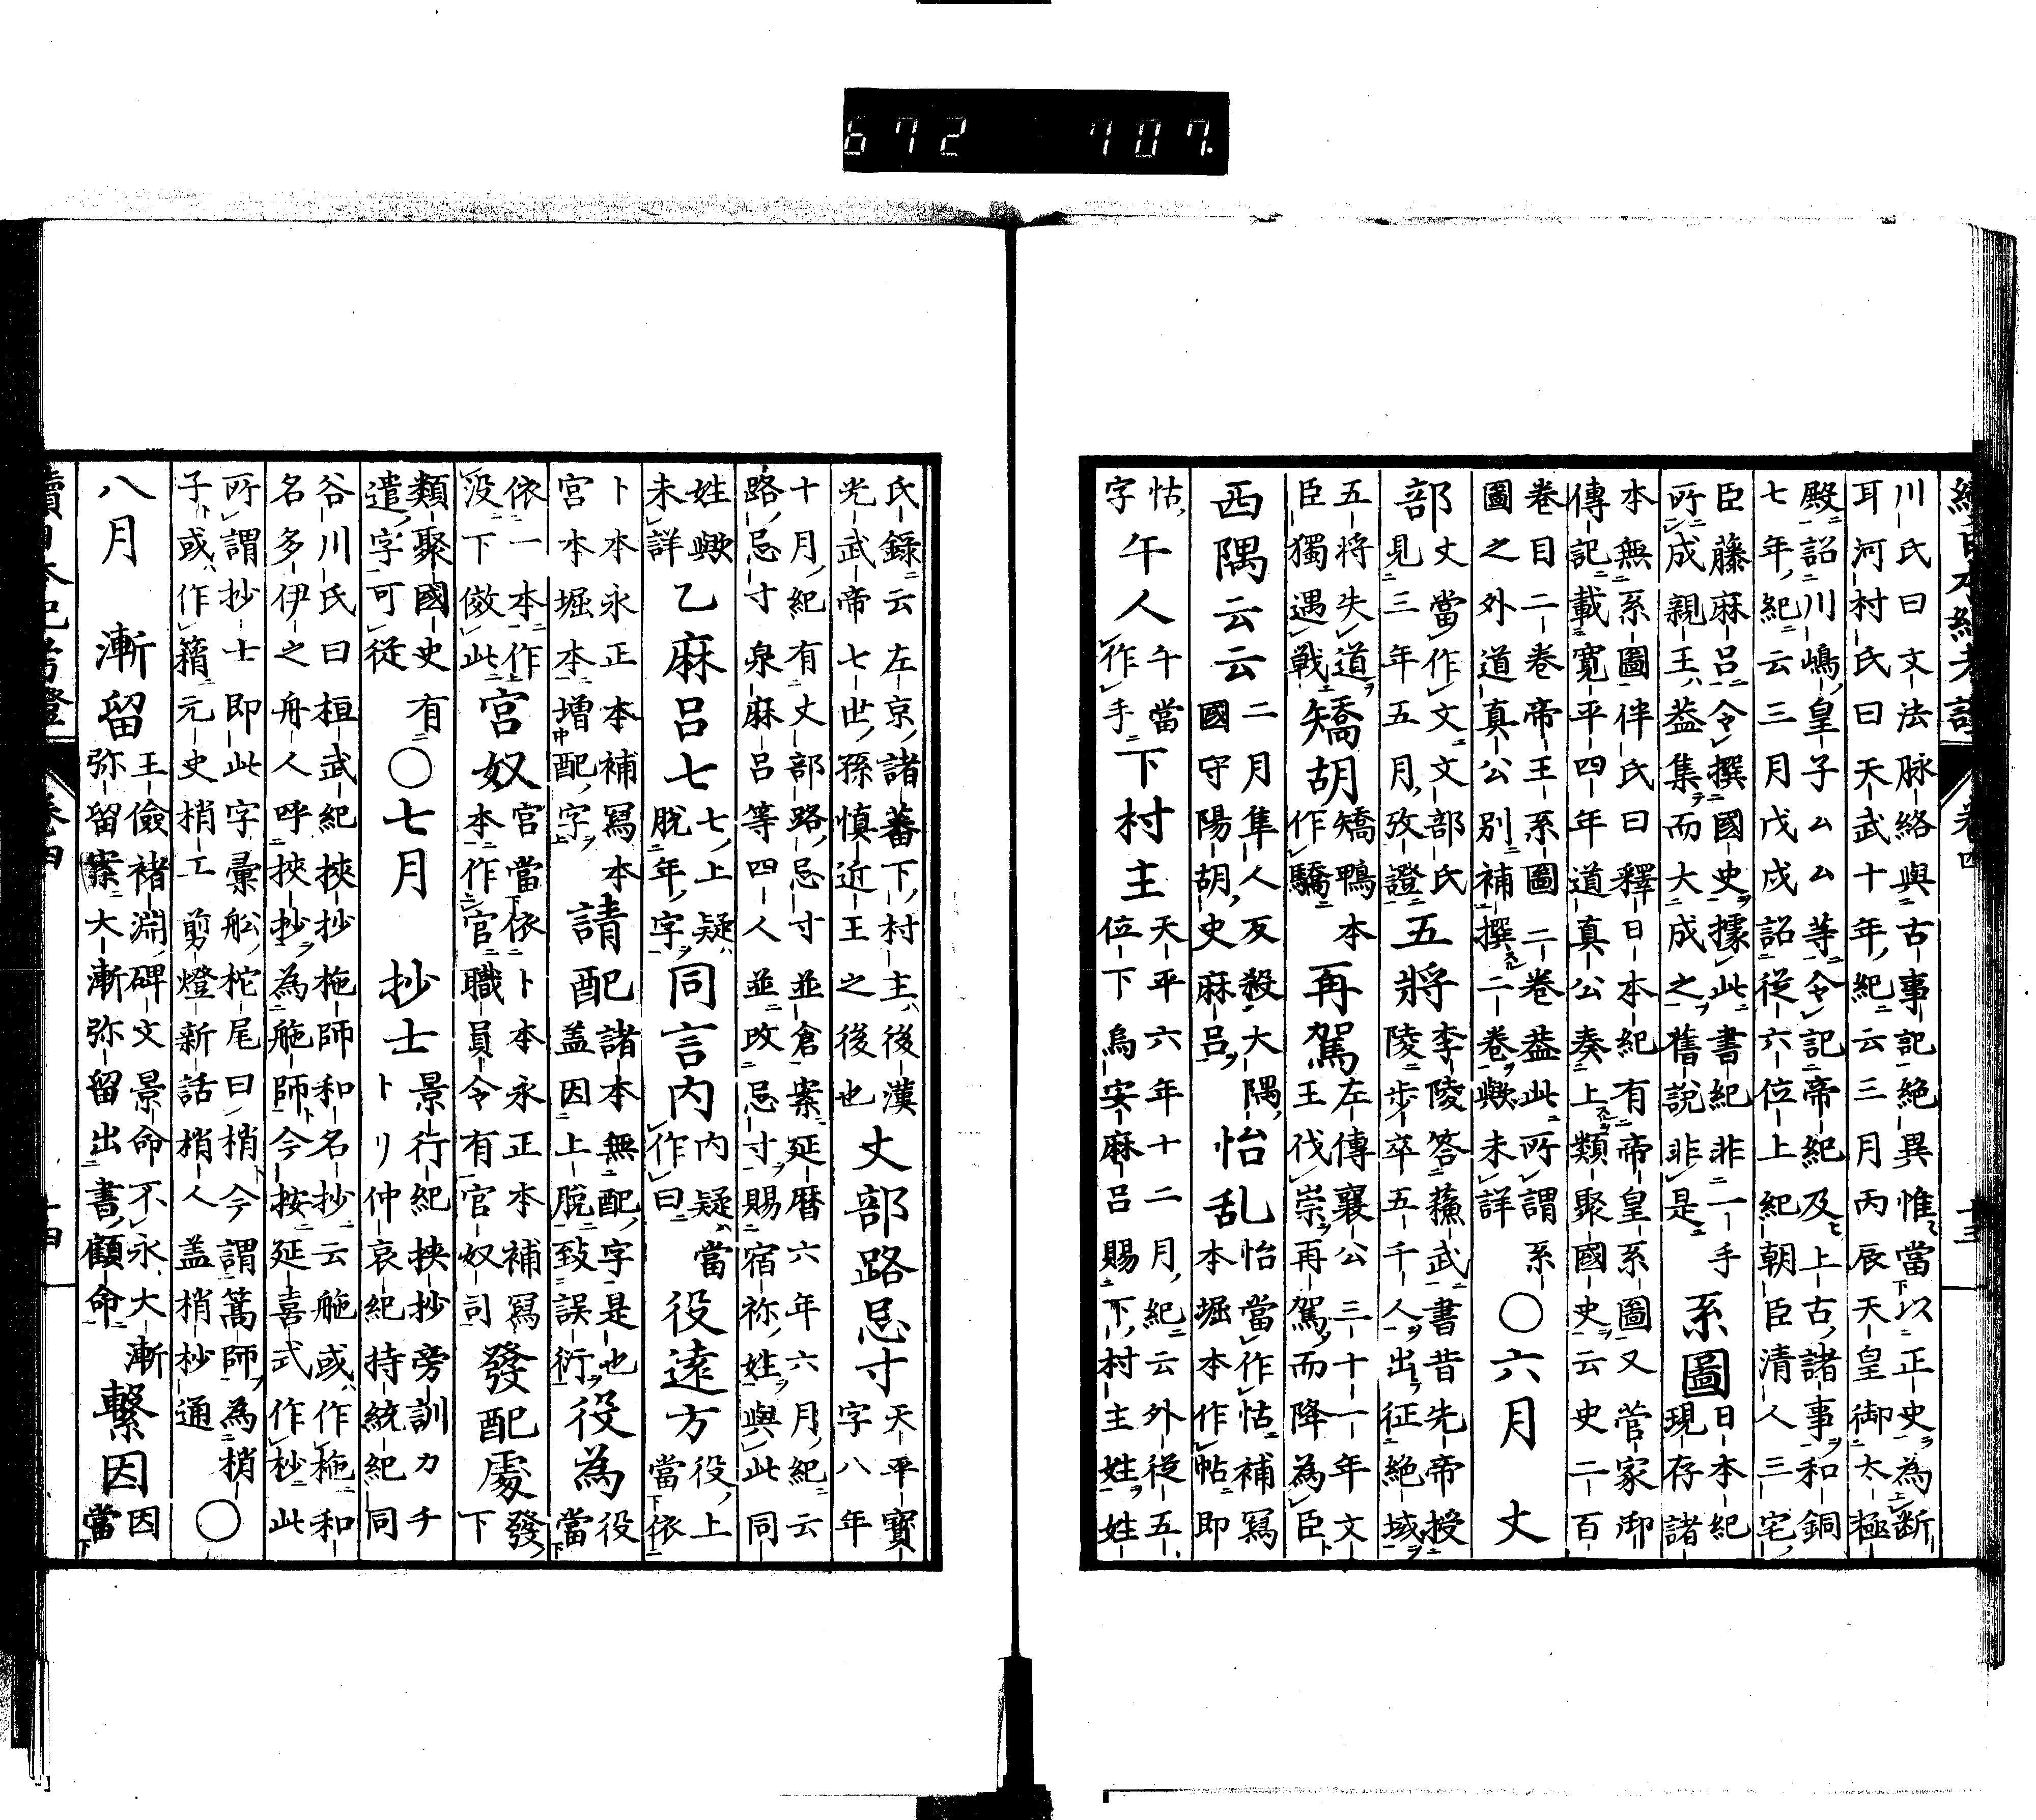 672 707
川氏曰文法脉絡與古事記絶異惟當以正史為断
耳河村氏曰天武十年紀云三月丙辰天皇御太極
殿詔川嶋皇子ムム等令記帝紀及上古諸事和銅
七年紀云三月戊戌詔從六位上紀朝臣清人三宅
臣藤麻呂令撰國史據此書紀非一手
所成親王葢集而大成之舊說非是
系圖
日本紀
現存諸
本無系圖伴氏曰釋日本紀有帝皇系圖又菅家御
傳記載寛平四年道真公奏上類聚國史云史二百
卷目二卷帝王系圖二卷葢此所謂系
圖之外道真公別補撰二卷歟未詳
〇六月
丈
部
丈當作文文部氏
見三年五月攷證
五將
李陵答蘓武書昔先帝授
陵步卒五千人出征絶域
五將失道
臣獨遇戦
矯胡
矯鴨本
作驕
再駕
左傳襄公三十一年文
王伐崇再駕而降為臣
西隅云云
二月隼人反殺大隅
國守陽胡史麻呂
怡乱
怡當作怙補寫
本堀本作帖即
怙
字
午人
午當
作手
下村主
天平六年十二月紀云外從五
位下烏安麻呂賜下村主姓姓
氏錄云左京諸蕃下村主後漢
光武帝七世孫慎近王之後也
丈部路忌寸
天平寳
字八年
十月紀有丈部路忌寸並倉案延暦六年六月紀云
路忌寸泉麻呂等四人並改忌寸賜宿祢姓與此同
姓歟
未詳
乙麻呂七
七上疑
脫年字
同言内
内疑當
作曰
役遠方
役上
當依
卜本永正本補寫本
宮本堀本增配字
請配
諸本無配字是也
盖因上脫致誤衍
役為
役
當
依一本作
没下倣此
宮奴
宮當依卜本永正本補寫
本作官職員令有官奴司
發配處
發
下
類聚國史有
遣字可從
〇七月
抄士
景行紀挾抄旁訓カチ
トリ仲哀紀持統紀同
谷川氏曰桓武紀挾抄柂師和名抄云舵或作柂和
名多伊之舟人呼挾抄為舵師今按延喜式作杪此
所謂抄士即此字彙舩柁尾曰梢今謂篙師為梢
子或作䈰元史梢工剪燈新話梢人盖梢杪通
〇
八月
漸留
王儉褚淵碑文景命不永大漸
弥留案大漸弥留出書顧命
繋因
因
當